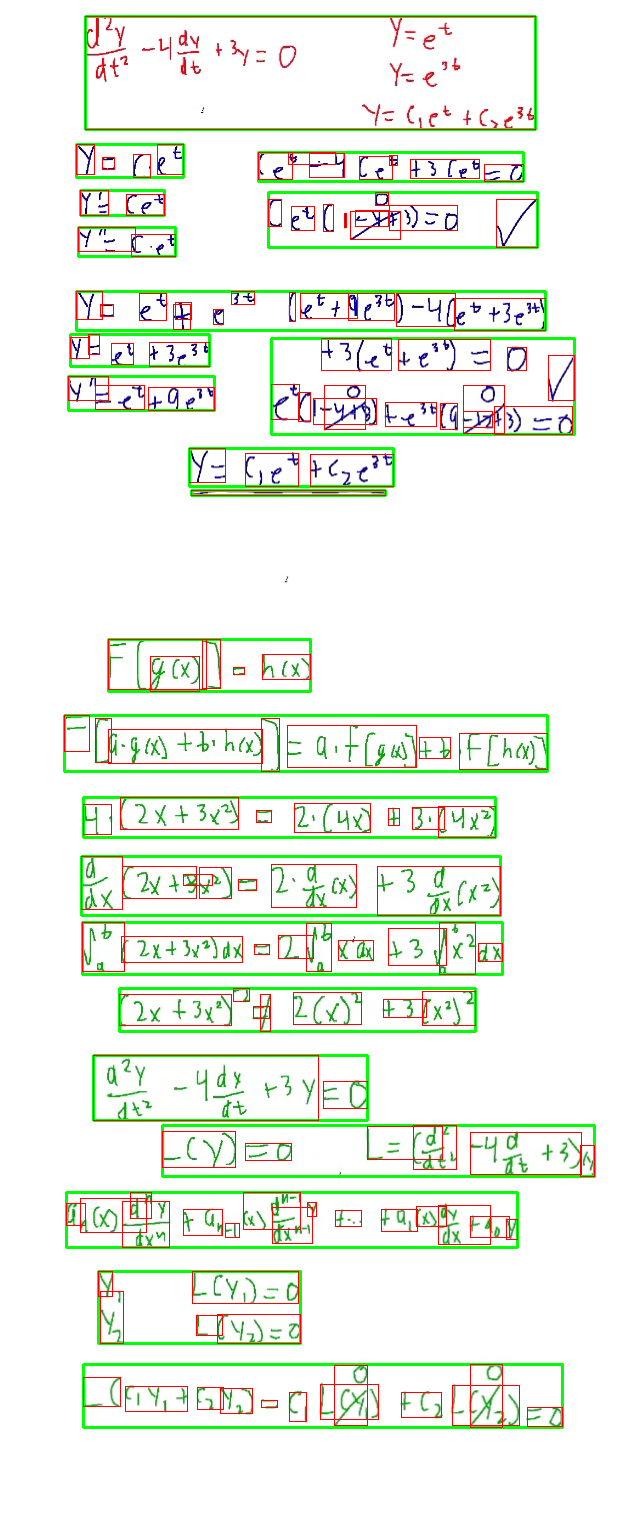 d²y/dt² - 4 dy/dt + 3y = 0 Y = e^t
Y = e^3t
Y = C₁e^t + C₂e^3t
Y = C·e^t Ce^t - 4 Ce^t + 3Ce^t = 0
Y' = Ce^t Ce^t(1-4+3) = 0 ✓
0
Y'' = C·e^t
Y = e^t + e^3t (e^t + 9e^3t) - 4(e^t + 3e^3t)
Y' = e^t + 3e^3t + 3(e^t + e^3t) = 0 ✓
Y'' = e^t + 9e^3t e^t(1-4+3) + e^3t(9-12+3) = 0
0 0
Y = C₁e^t + C₂e^3t
F[g(x)] = h(x)
F[a·g(x) + b·h(x)] = a·F[g(x)] + b·F[h(x)]
4·(2x + 3x²) = 2·(4x) + 3·(4x²)
d/dx (2x + 3x²) = 2·d/dx(x) + 3 d/dx(x²)
∫ₐᵇ (2x + 3x²)dx = 2∫ₐᵇ x dx + 3∫ₐᵇ x² dx
(2x + 3x²)² ≠ 2(x)² + 3(x²)²
d²y/dt² - 4 dy/dt + 3y = 0
L(Y) = 0 L = (d²/dt² - 4 d/dt + 3)y
aₙ(x) dⁿy/dxⁿ + aₙ₋₁(x) dⁿ⁻¹y/dxⁿ⁻¹ + ... + a₁(x) dy/dx + a₀y
Y₁ L(Y₁) = 0
Y₂ L(Y₂) = 0
L(C₁Y₁ + C₂Y₂) = C₁ L(Y₁) + C₂ L(Y₂) = 0
0 0